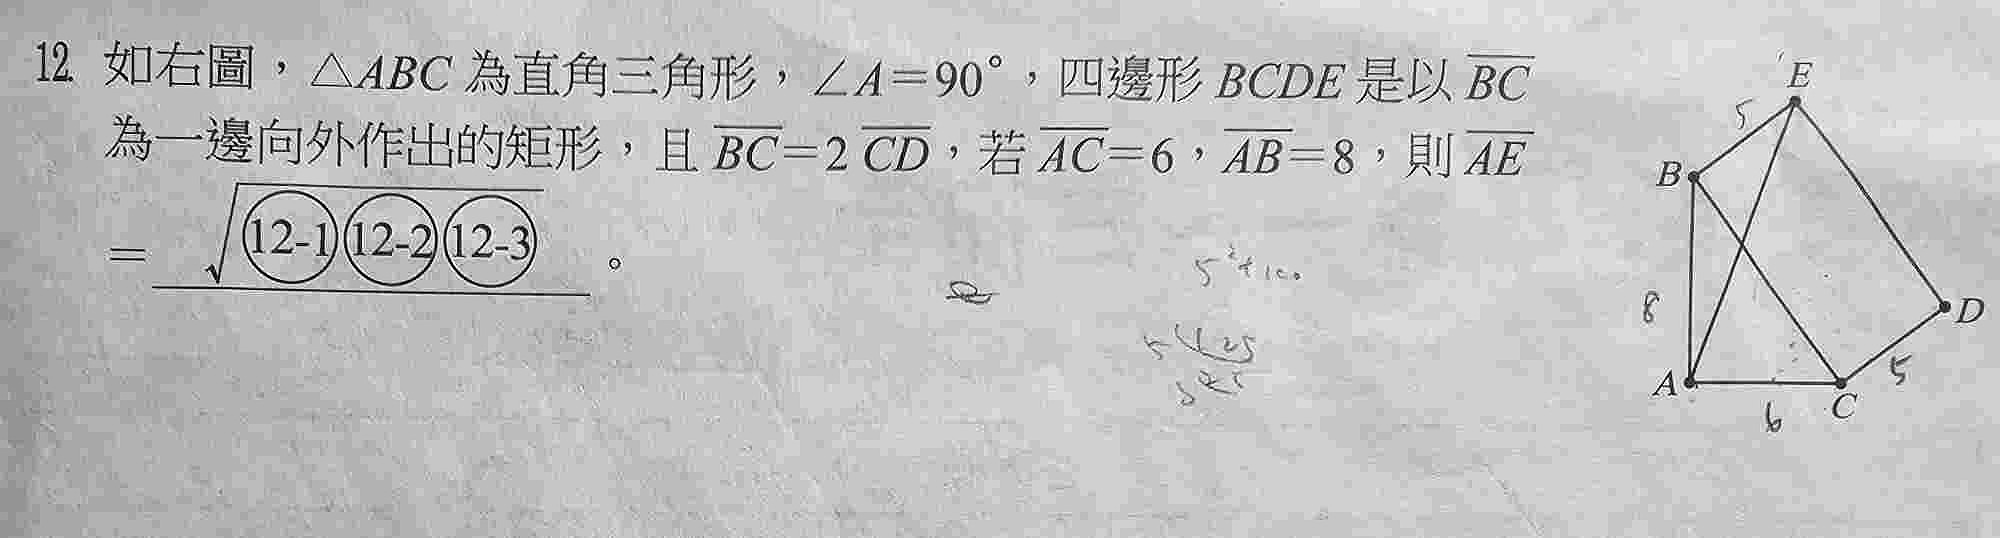 12. 如右圖,△ABC 為直角三角形,∠A=90°,四邊形 BCDE 是以 \overline{BC}
為一邊向外作出的矩形,且 \overline{BC}=2 \overline{CD},若 \overline{AC}=6,\overline{AB}=8,則 \overline{AE}
= √(12-1)(12-2)(12-3) 。
E
5
B
5²+100
8
D
5
A
C
6